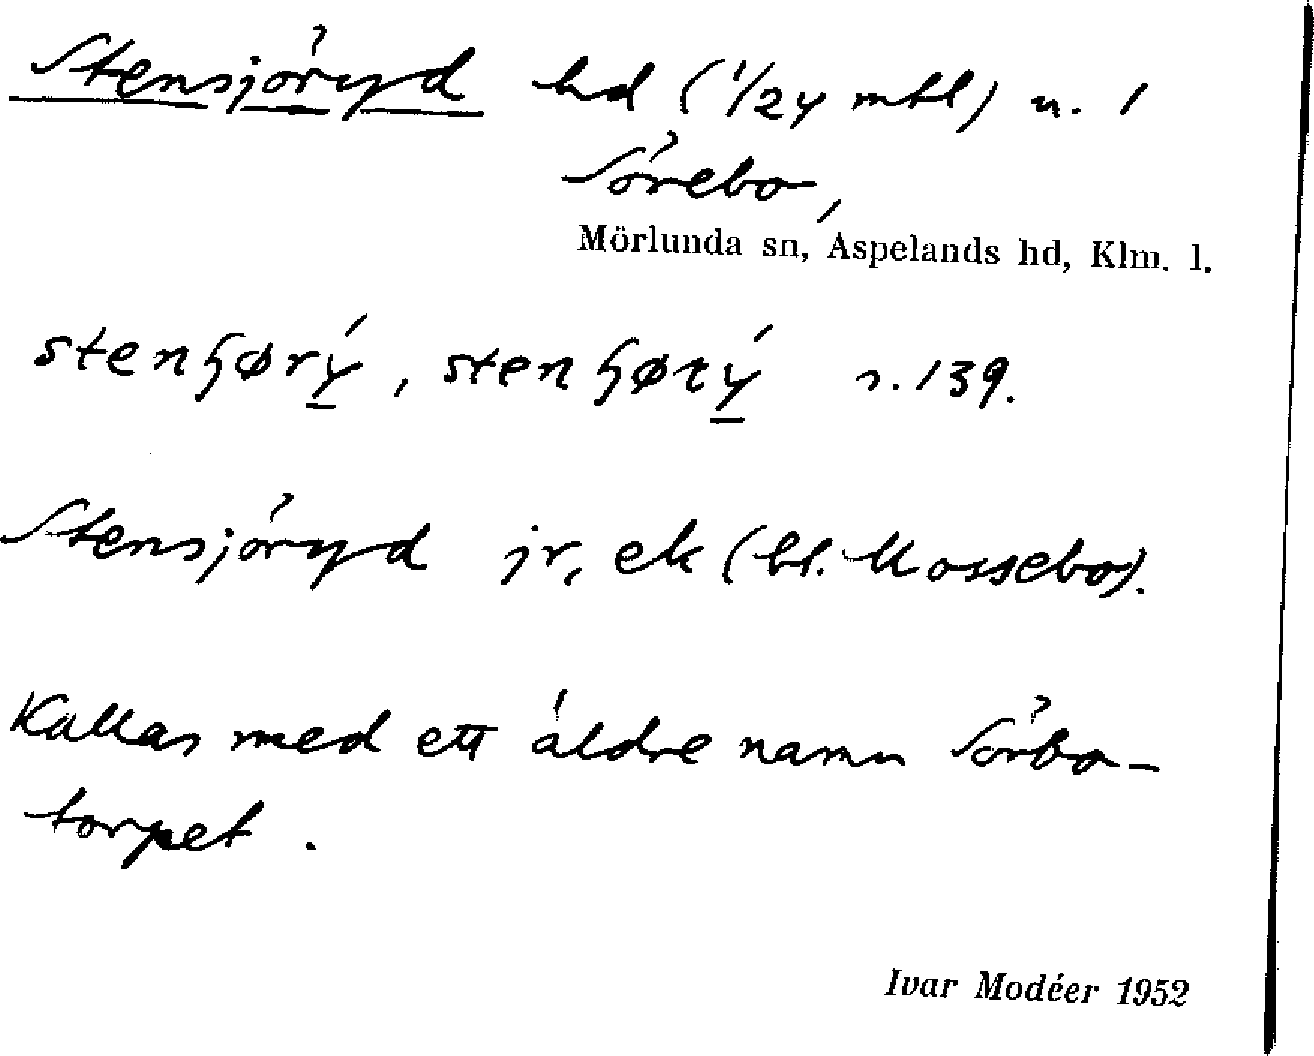 Stensjöryd hd (1/24 mtl) u. 1
Sörebo,
Mörlunda sn, Aspelands hd, Klm. l.
s. 139.
Stensjöryd jr, ek (bl. Mossebo).
Kallas med ett äldre namn Sörbo-
torpet.
Ivar Modéer 1952